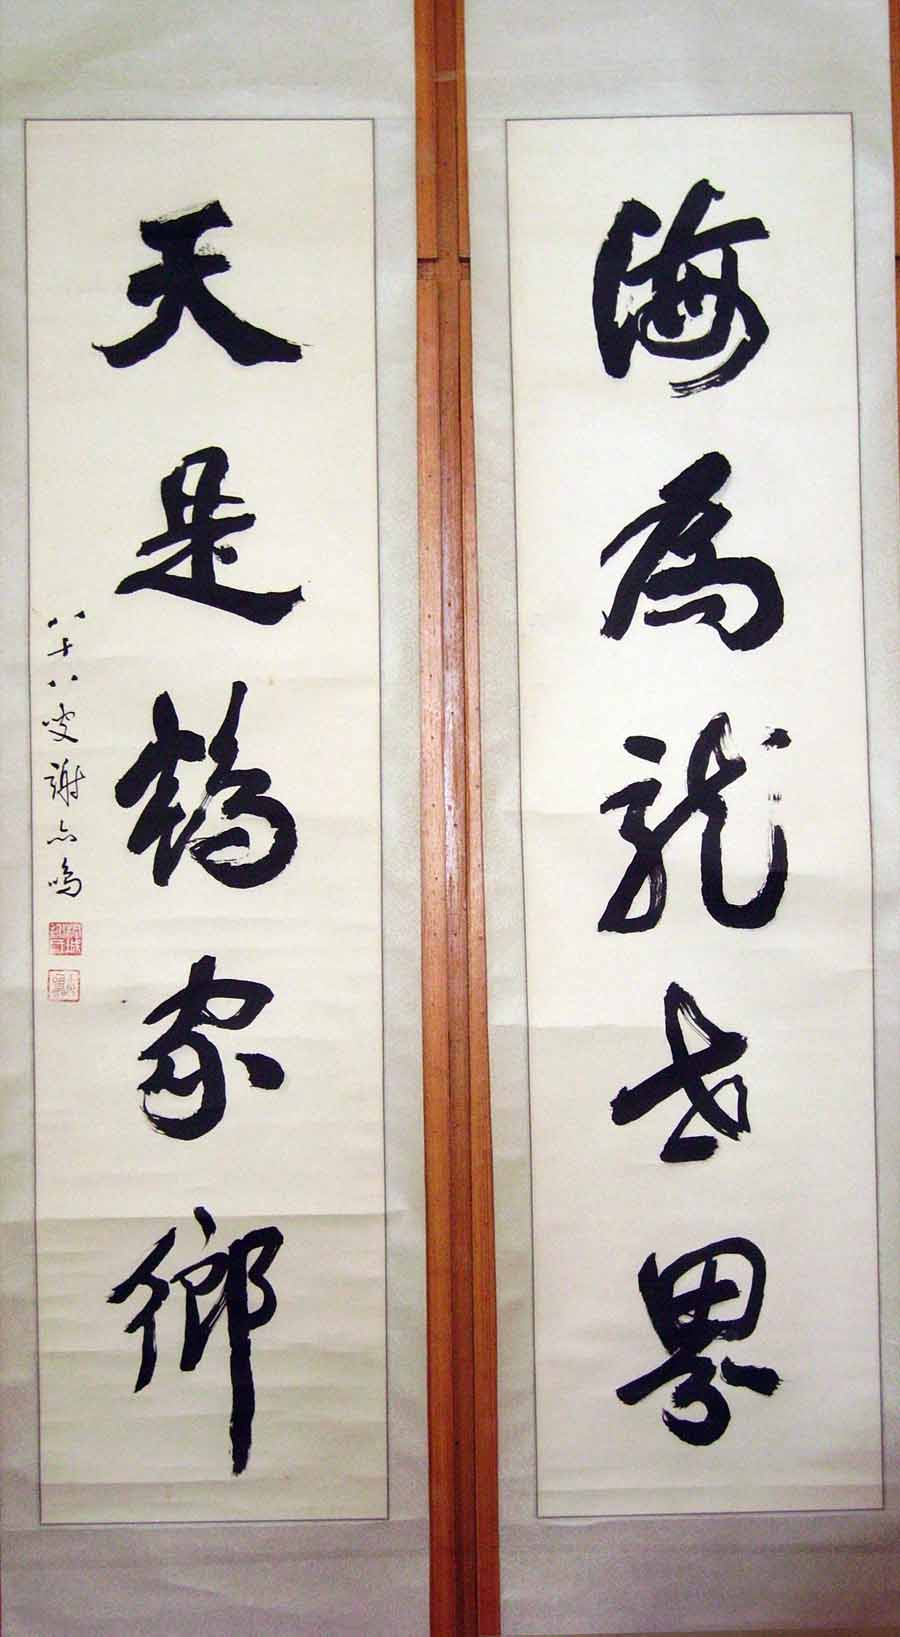 海為龍世界
天是鶴家鄉
八十八叟謝亦鳴